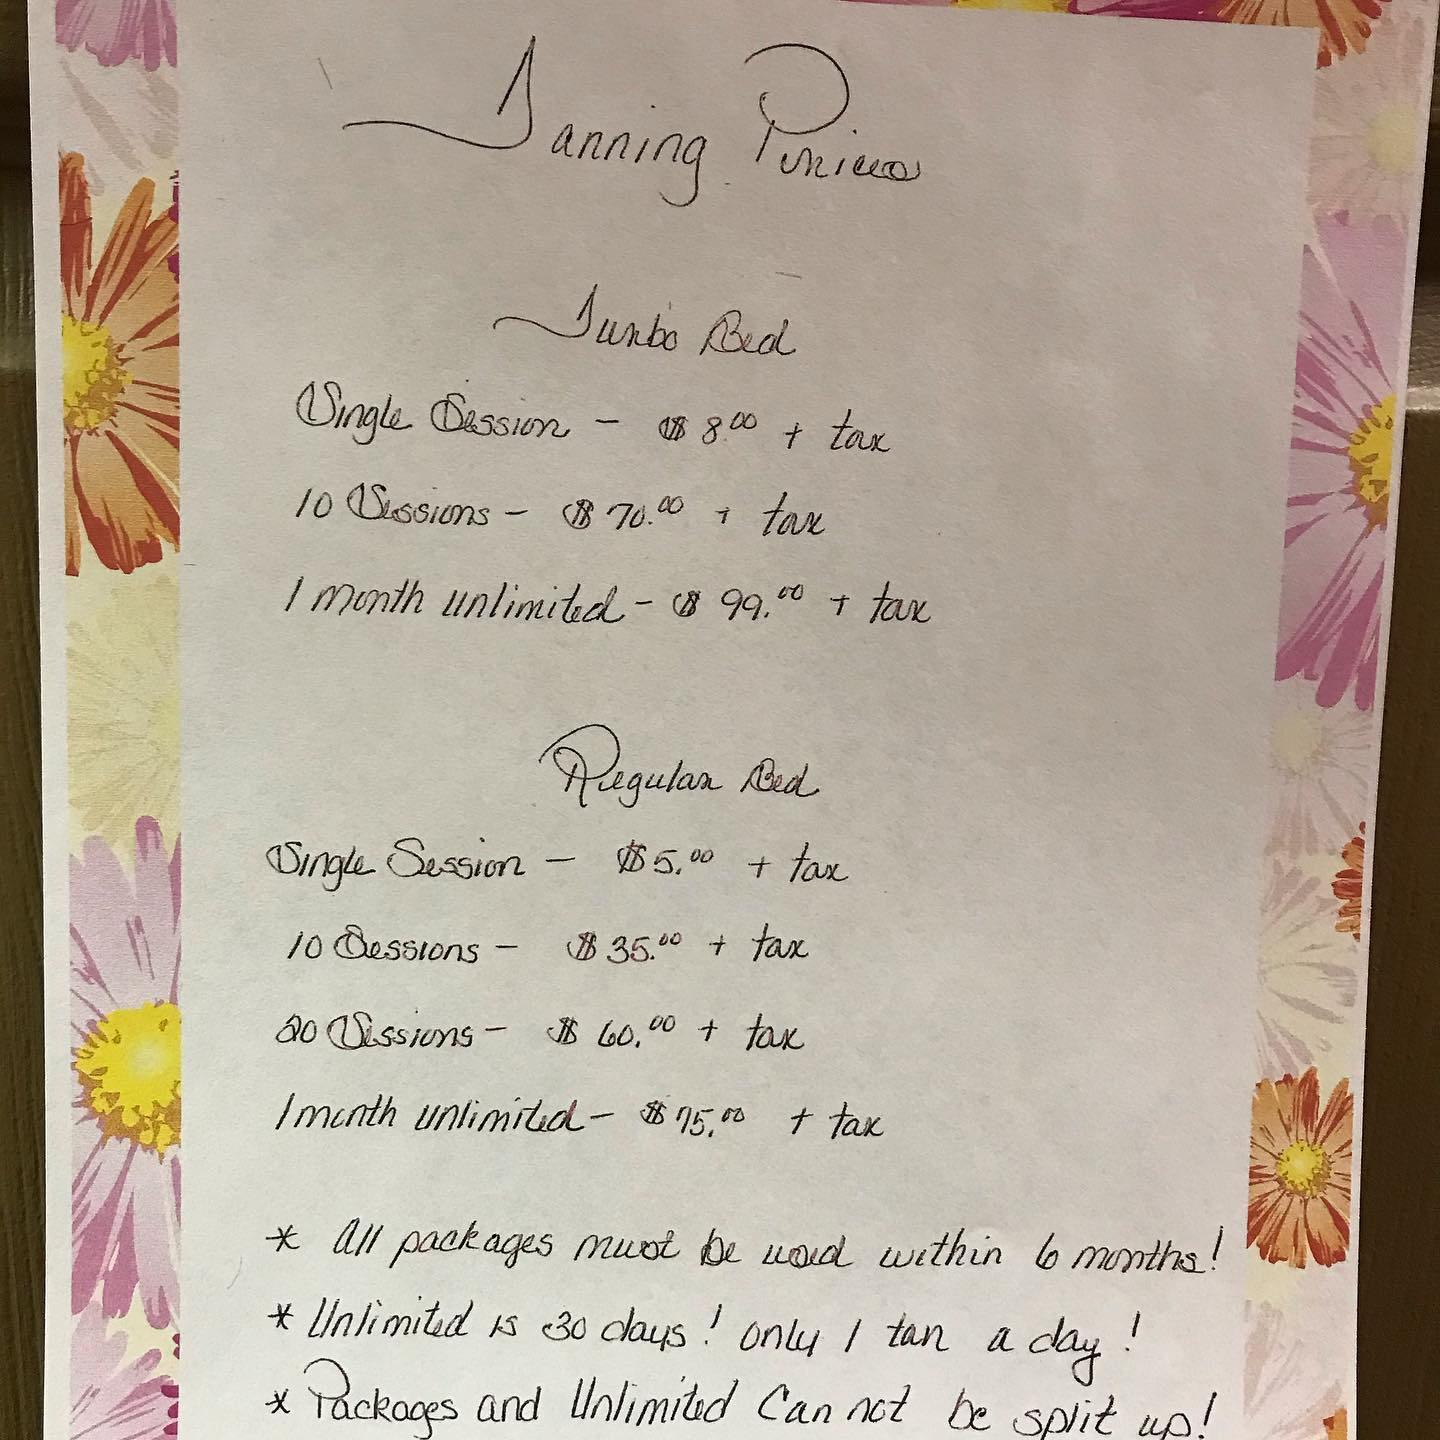 Tanning Prices
Turbo Bed
Single Session - $8.00 + tax
10 Sessions - $70.00 + tax
1 month unlimited - $99.00 + tax
Regular Bed
Single Session - $5.00 + tax
10 Sessions - $35.00 + tax
20 Sessions - $60.00 + tax
1 month unlimited - $75.00 + tax
* All packages must be used within 6 months!
* Unlimited is 30 days! only 1 tan a day!
* Packages and Unlimited Can not be split up!